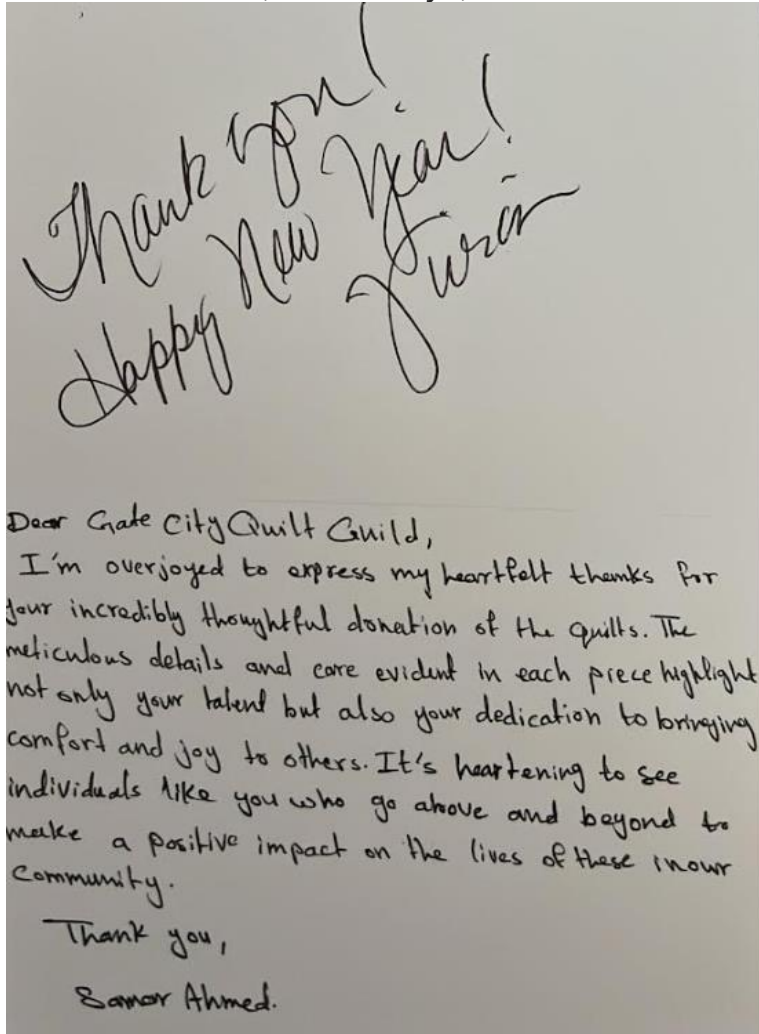 Thank you!
Happy New Year!
Dear Gate City Quilt Guild,
I'm overjoyed to express my heartfelt thanks for
your incredibly thoughtful donation of the quilts. The
meticulous details and care evident in each piece highlight
not only your talent but also your dedication to bringing
comfort and joy to others. It's heartening to see
individuals like you who go above and beyond to
make a positive impact on the lives of these in our
Community.
Thank you,
Samar Ahmed.